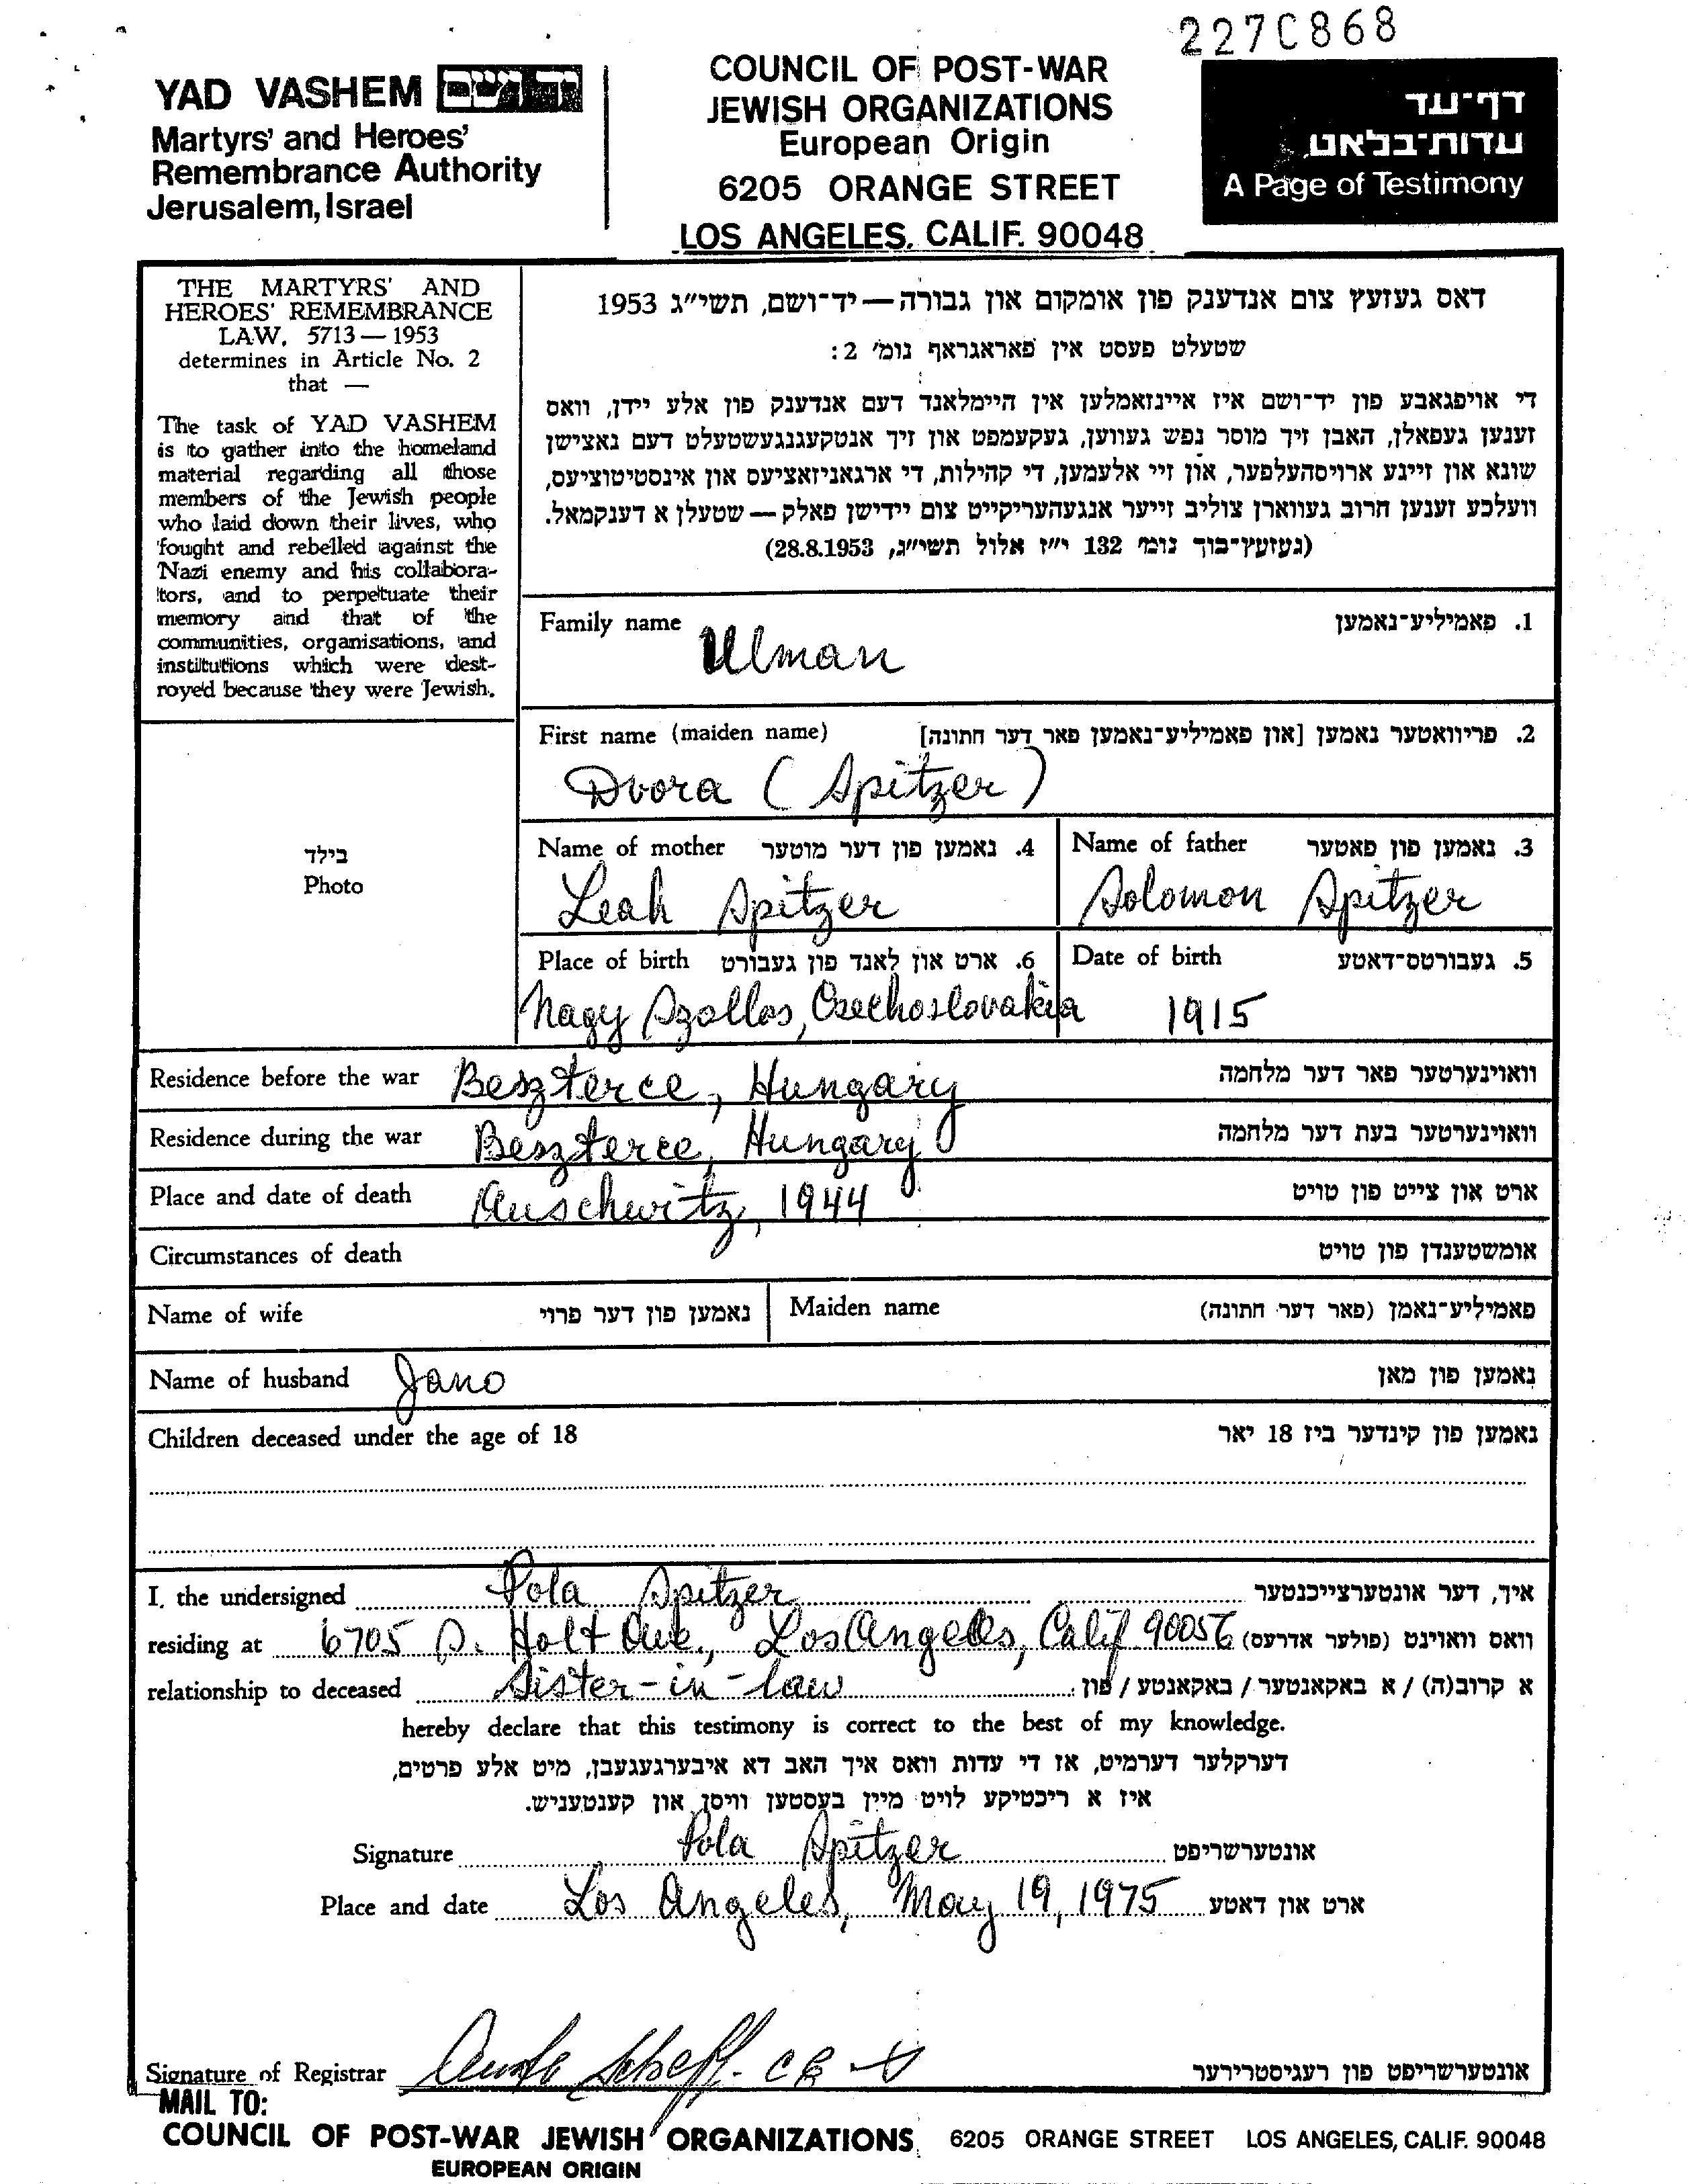 227C868
YAD VASHEM יד ושם
Martyrs' and Heroes'
Remembrance Authority
Jerusalem, Israel
COUNCIL OF POST-WAR
JEWISH ORGANIZATIONS
European Origin
6205 ORANGE STREET
LOS ANGELES, CALIF. 90048
דף-עד
עדות-בלאט
A Page of Testimony
THE MARTYRS' AND
HEROES' REMEMBRANCE
LAW, 5713 — 1953
determines in Article No. 2
that —
The task of YAD VASHEM
is to gather into the homeland
material regarding all those
members of the Jewish people
who laid down their lives, who
fought and rebelled against the
Nazi enemy and his collabora-
tors, and to perpetuate their
memory and that of the
communities, organisations, and
institutions which were dest-
royed because they were Jewish.
דאס געזעץ צום אנדענק פון אומקום און גבורה — יד-ושם, תשי"ג 1953
שטעלט פעסט אין פאראגראף נומ' 2:
די אויפגאבע פון יד-ושם איז איינזאמלען אין היימלאנד דעם אנדענק פון אלע יידן, וואס
זענען געפאלן, האבן זיך מוסר נפש געווען, געקעמפט און זיך אנטקעגנגעשטעלט דעם נאצישן
שונא און זיינע ארויסהעלפער, און זיי אלעמען, די קהילות, די ארגאניזאציעס און אינסטיטוציעס,
וועלכע זענען חרוב געווארן צוליב זייער אנגעהעריקייט צום יידישן פאלק — שטעלן א דענקמאל.
(געזעץ-בוך נומ' 132 י"ז אלול תשי"ג, 28.8.1953)
Family name 1. פאמיליע-נאמען
Ulman
First name (maiden name) 2. פריוואטער נאמען [און פאמיליע-נאמען פאר דער חתונה]
Dvora (Spitzer)
בילד
Photo
Name of mother 4. נאמען פון דער מוטער
Leah Spitzer
Name of father 3. נאמען פון פאטער
Solomon Spitzer
Place of birth 6. ארט און לאנד פון געבורט
Nagy Szollos, Czechoslovakia
Date of birth 5. געבורטס-דאטע
1915
Residence before the war Beszterce, Hungary וואוינערטער פאר דער מלחמה
Residence during the war Beszterce, Hungary וואוינערטער בעת דער מלחמה
Place and date of death Auschwitz, 1944 ארט און צייט פון טויט
Circumstances of death אומשטענדן פון טויט
Name of wife נאמען פון דער פרוי Maiden name פאמיליע-נאמן (פאר דער חתונה)
Name of husband Jano נאמען פון מאן
Children deceased under the age of 18 נאמען פון קינדער ביז 18 יאר
I, the undersigned Pola Spitzer איך, דער אונטערצייכנטער
residing at 6705 S. Holt Ave., Los Angeles, Calif 90056 וואס וואוינט (פולער אדרעס)
relationship to deceased Sister-in-law א קרוב(ה) / א באקאנטער / באקאנטע / פון:
hereby declare that this testimony is correct to the best of my knowledge.
דערקלער דערמיט, אז די עדות וואס איך האב דא איבערגעגעבן, מיט אלע פרטים,
איז א ריכטיקע לויט מיין בעסטען וויסן און קענטעניש.
Signature Pola Spitzer אונטערשריפט
Place and date Los Angeles, May 19, 1975 ארט און דאטע
Signature of Registrar אונטערשריפט פון רעגיסטרירער
MAIL TO:
COUNCIL OF POST-WAR JEWISH ORGANIZATIONS, 6205 ORANGE STREET LOS ANGELES, CALIF. 90048
EUROPEAN ORIGIN